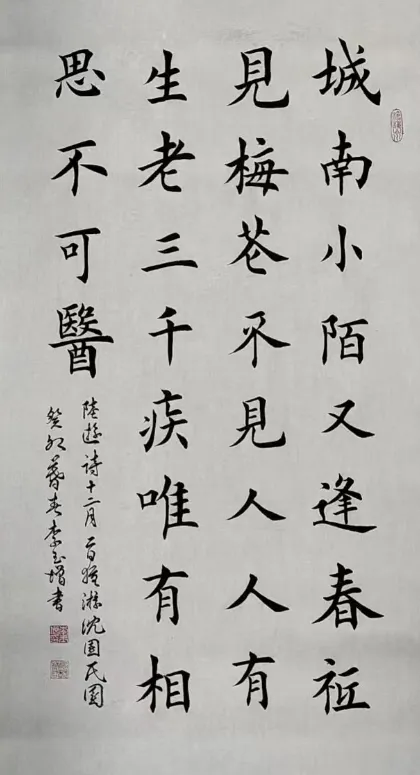 城南小陌又逢春祗
見梅花不見人人有
生老三千疾唯有相
思不可醫
陸遊詩十二月游沈園
癸卯暮春李玉增書